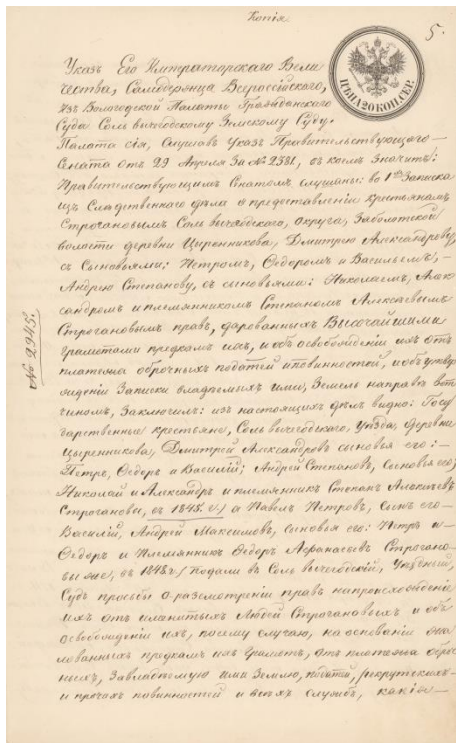 Копія
5.
ЦѢНА 20 КОП. СЕР.
Указъ Его Императорскаго Вели
чества, Самодержца Всероссійскаго,
изъ Вологодской Палаты Гражданскаго
Суда Соль вычегодскому Земскому Суду.
Палата сія, слушавъ Указъ Правительствующаго
Сената отъ 29 Апреля за № 2581, въ коемъ значитъ:
Правительствующимъ Сенатомъ слушаны: во 1хъ Записка
изъ Следственнаго дѣла о предоставленіи крестьянамъ
Строгановымъ Соль вычегодскаго, округа, Заболотской
волости деревни Цыренникова, Дмитрію Александрову,
съ Сыновьями: Петромъ, Ѳедоромъ и Васильемъ,
Андрею Степанову, съ сыновьями: Николаемъ, Алек
сандромъ и племянникомъ Степаномъ Алексѣевымъ
Строгановымъ правъ, дарованныхъ Высочайшими
грамотами предкамъ ихъ, и объ освобожденіи ихъ отъ
платежа оброчныхъ податей и повинностей, и объ утвер
жденіи Записки владѣемыхъ ими, Земель на правѣ вот
чиномъ, Заключилъ: изъ настоящихъ дѣлъ видно: Госу
дарственные крестьяне, Соль вычегодскаго Уѣзда, деревни
Цыренникова, Дмитрій Александровъ сыновья его:
Петръ, Ѳедоръ и Василій; Андрей Степановъ, сыновья его;
Николай и Александръ и племянникъ Степанъ Алексѣевъ
Строгановы, въ 1845. г./ а Павелъ Петровъ, сынъ его
Василій, Андрей Максимовъ, сыновья его: Петръ и
Ѳедоръ и Племянникъ Ѳедоръ Афанасьевъ Строгано
вы же, въ 1848 г./ Подали въ Соль вычегодскій, Уѣздный,
Судъ просьбы о разсмотреніи правъ на происхожденіе
ихъ отъ именитыхъ Людей Строгановыхъ и объ
освобожденіи ихъ, по сему случаю, на основаніи
лованныхъ предкамъ ихъ Грамотъ, отъ платежа оброч
ныхъ, за владѣемую ими Землю, податей, рекрутскихъ
и прочихъ повинностей и всѣхъ службъ, какія
№ 2945.